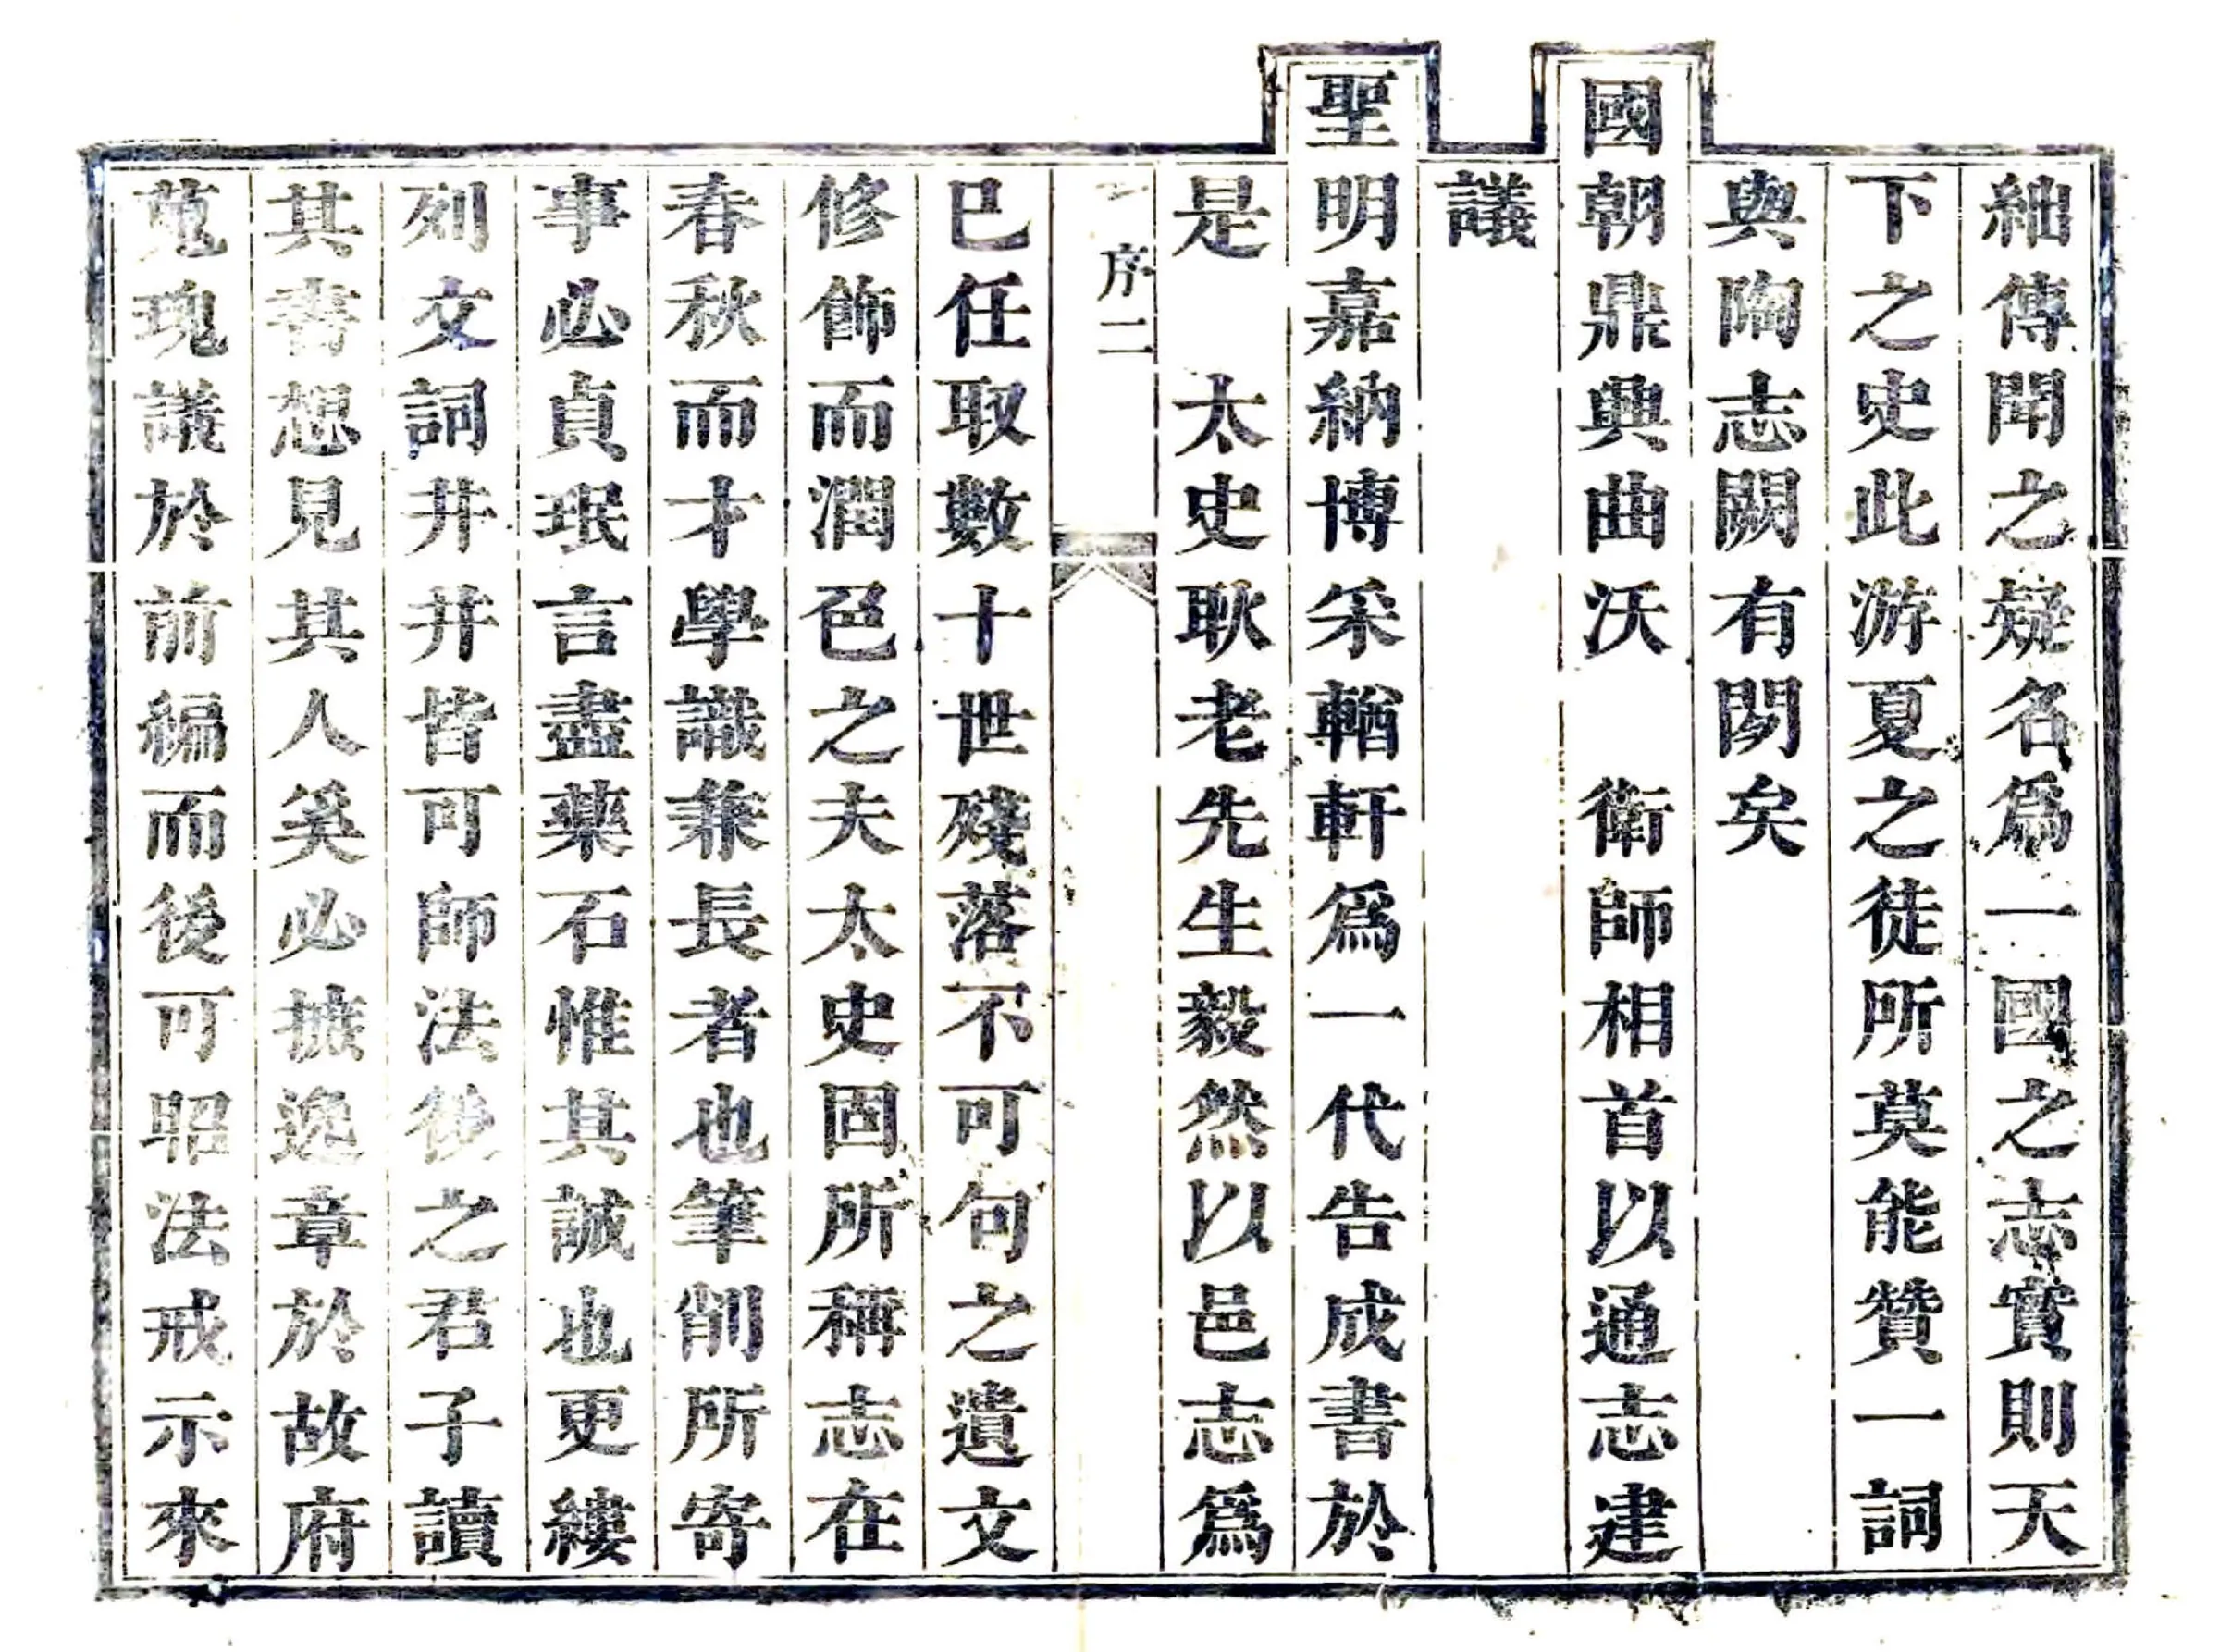 紬傳聞之疑名爲一國之志實則天
下之史此游夏之徒所莫能贊一詞
與陶志闕有閒矣
國朝鼎典曲沃　衛師相首以通志建
議
聖明嘉納博采輶軒爲一代告成書於
是　太史耿老先生毅然以邑志爲
序二
巳任取數十世殘落不可句之遺文
修飾而潤色之夫太史固所稱志在
春秋而才學識兼長者也筆削所寄
事必貞珉言盡藥石惟其誠也更縷
列文詞井井皆可師法後之君子讀
其書想見其人奚必摭逸章於故府
蒐瑰議於前編而後可昭法戒示來